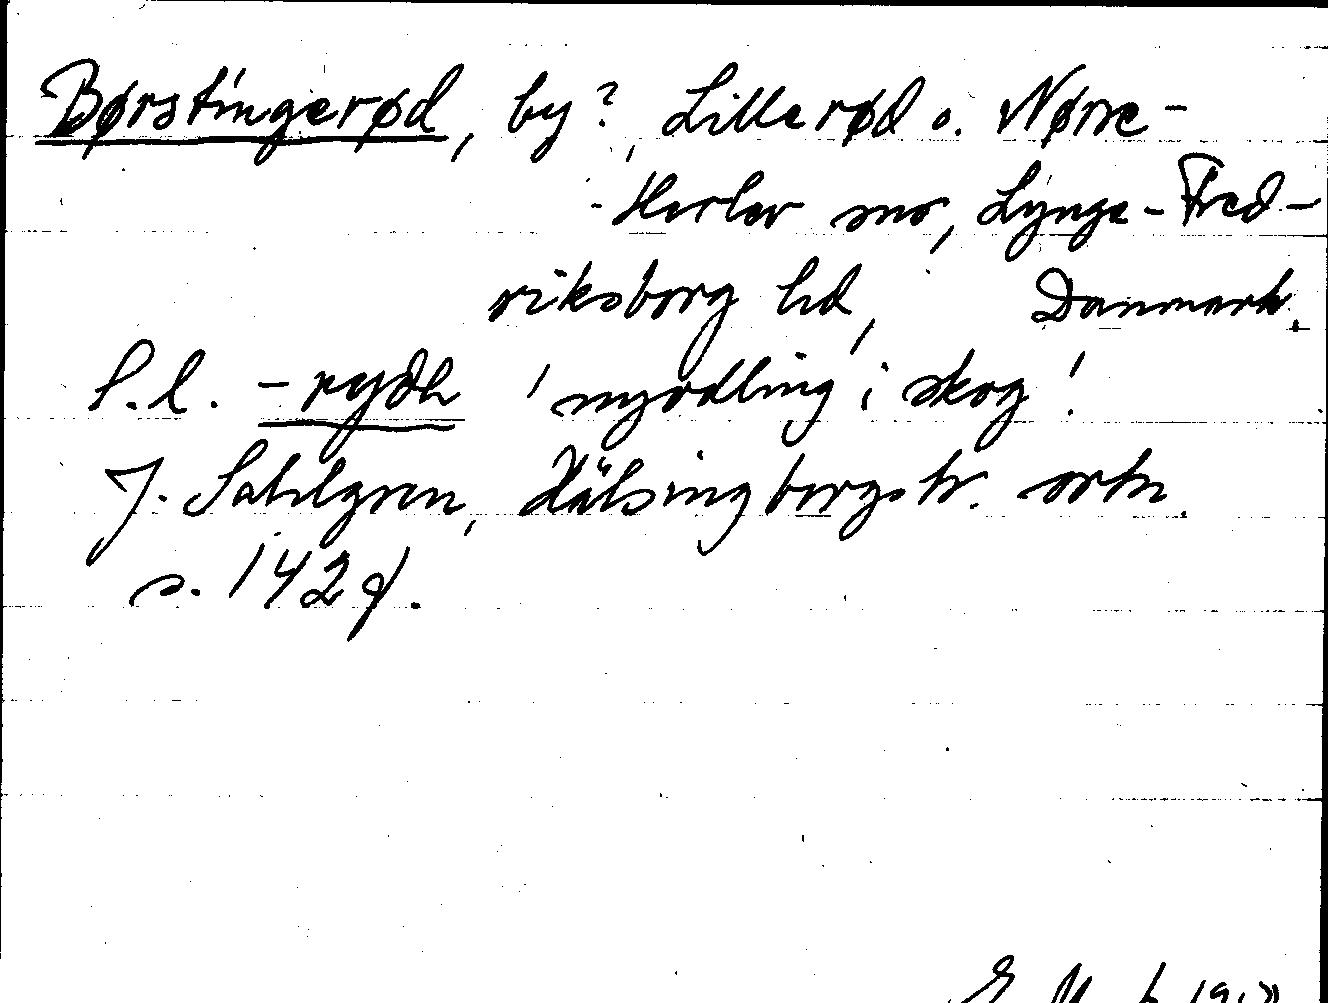 Børstingerød, by?, Lillerød o. Nørre-
-Herlev snr, Lynge-Fred-
riksborg hd, Danmark.
S.l. -rydh 'nyodling i skog'.
J. Sahlgren, Hälsingborgstr. ortn.
s. 142 f.